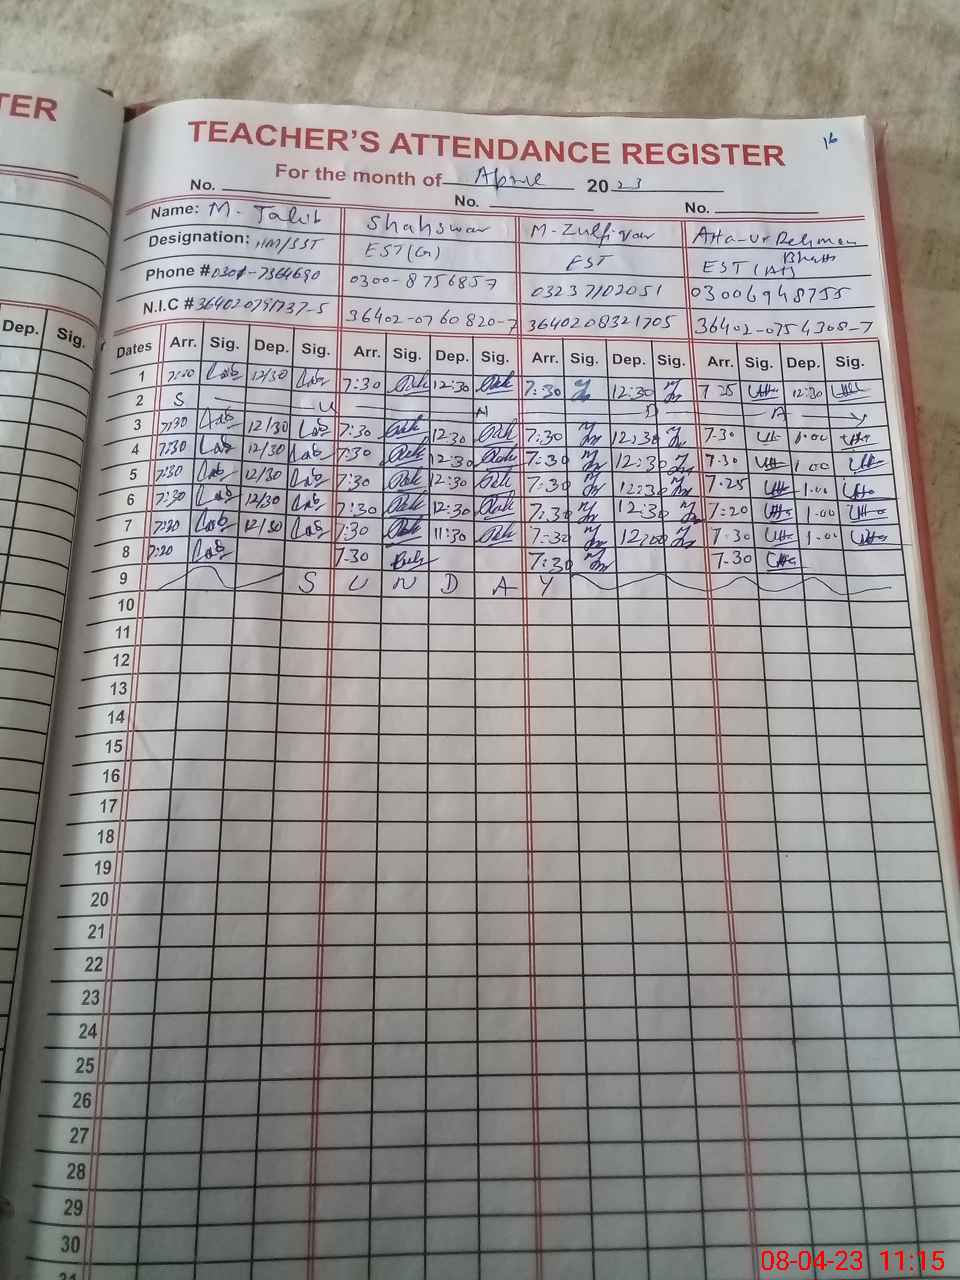 TER
TEACHER'S ATTENDANCE REGISTER
16
For the month of April 2023
No. No. No.
Name: M- Talib Shahswar M-Zulfiqar Atta-ur Rehman
Bhatti
Designation: HM/SST EST(G) EST EST (AT)
Phone # 0301-7364690 0300-8756857 03237102051 03006948755
N.I.C # 364020791737-5 36402-0760820-7 3640208321705 36402-0754308-7
Dep. Sig.
Dates Arr. Sig. Dep. Sig. Arr. Sig. Dep. Sig. Arr. Sig. Dep. Sig. Arr. Sig. Dep. Sig.
1 7:30 12/30 7:30 12:30 7:30 12:30 7 25 12:30
2 S U N D A Y
3 7:30 12/30 7:30 12:30 7:30 12:30 7-30 1.00
4 7:30 12/30 7:30 12:30 7:30 12:30 7.30 1.00
5 7:30 12/30 7:30 12:30 7:30 12:30 7.25 1.00
6 7:30 12/30 7:30 12:30 7:30 12:30 7:20 1.00
7 7:30 12/30 7:30 11:30 7:30 12:00 7.30 1.00
8 7:20 7.30 7:30 7.30
9 S U N D A Y
10
11
12
13
14
15
16
17
18
19
20
21
22
23
24
25
26
27
28
29
30
31
08-04-23 11:15